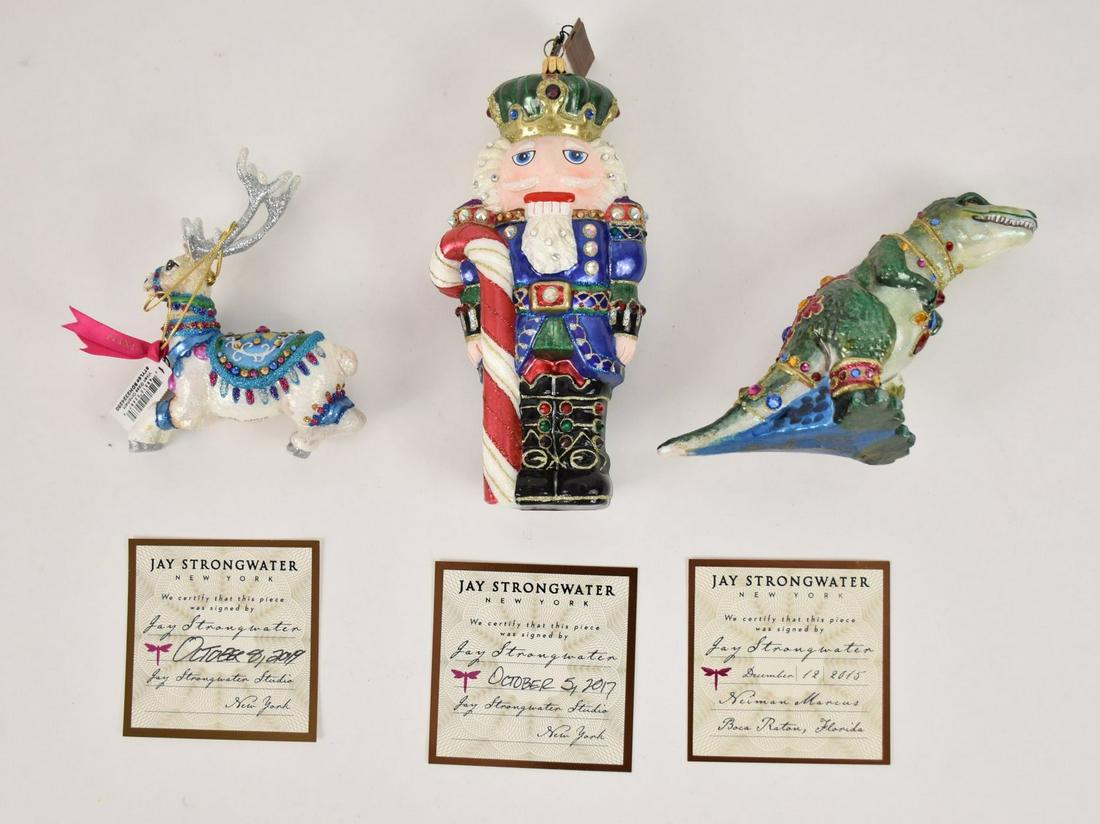 JAY STRONGWATER
NEW YORK
We certify that this piece
was signed by
Jay Strongwater
OCTOBER 8, 2019
Jay Strongwater Studio
New York
JAY STRONGWATER
NEW YORK
We certify that this piece
was signed by
Jay Strongwater
OCTOBER 5, 2017
Jay Strongwater Studio
New York
JAY STRONGWATER
NEW YORK
We certify that this piece
was signed by
Jay Strongwater
December 12 2015
Neiman Marcus
Boca Raton, Florida